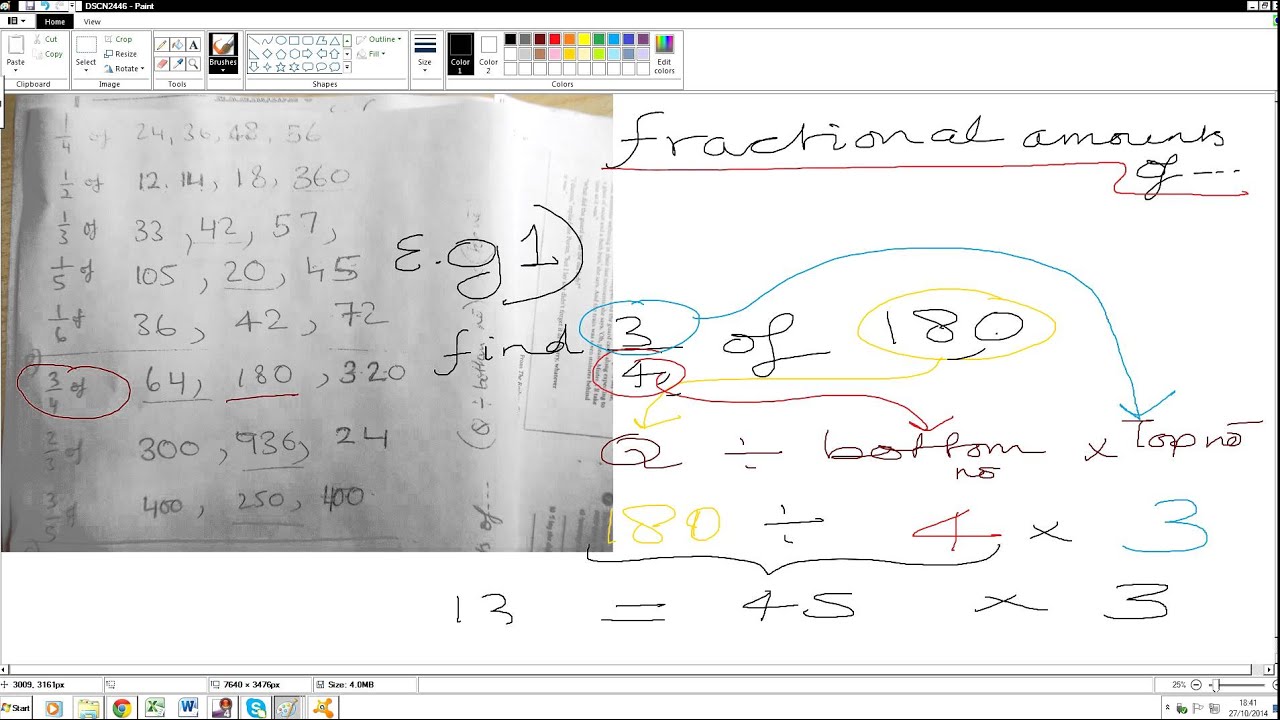 DSCN2446 - Paint
Home View
Paste Cut Copy Clipboard
Select Crop Resize Rotate Image
Tools
Brushes
Outline Fill Shapes
Size
Color 1 Color 2 Edit colors Colors
1/4 of 24, 36, 48, 56
1/2 of 12.14, 18, 360
1/3 of 33, 42, 57,
1/5 of 105, 20, 45
1/6 of 36, 42, 72
3/4 of 64, 180, 320
2/3 of 300, 936, 24
3/5 of 400, 250, 400
fractional amounts
of ...
E.g 1)
find 3/4 of 180
Q ÷ bottom no × Top no
180 ÷ 4 × 3
13 = 45 × 3
3009, 3161px 7640 × 3476px Size: 4.0MB 25%
Start 18:41
27/10/2014